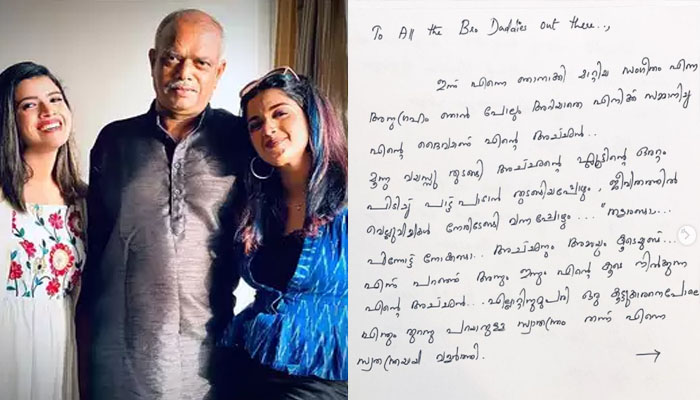 To All the Bro Daddies out there..,
ഇന്ന് എന്നെ ഞാനാക്കി മാറ്റിയ സംഗീതം എന്ന
അനുഗ്രഹം ഞാൻ പോലും അറിയാതെ എനിക്ക് സമ്മാനിച്ച
എന്റെ ദൈവമാണ് എന്റെ അച്ഛൻ..
മൂന്നു വയസ്സു തുടങ്ങി അച്ഛന്റെ
പിടിച്ച് പാട്ട് പാടാൻ തുടങ്ങിയപ്പോഴും, ജീവിതത്തിൽ
വെല്ലുവിളികൾ നേരിടേണ്ടി വന്നപ്പോഴും... "തളരരുത്..
പിന്നോട്ട് നോക്കരുത്... അച്ഛനും അമ്മയും കൂടെയുണ്ട്"...
എന്ന് പറഞ്ഞ് അന്നും ഇന്നും എന്റെ കൂടെ നിൽക്കുന്ന
എന്റെ അച്ഛൻ... എല്ലാറ്റിനുമുപരി ഒരു കൂട്ടുകാരനെപോലെ
എന്തും തുറന്നു പറയാനുള്ള സ്വാതന്ത്ര്യം തന്ന് എന്നെ
സ്വതന്ത്രയായി വളർത്തി.